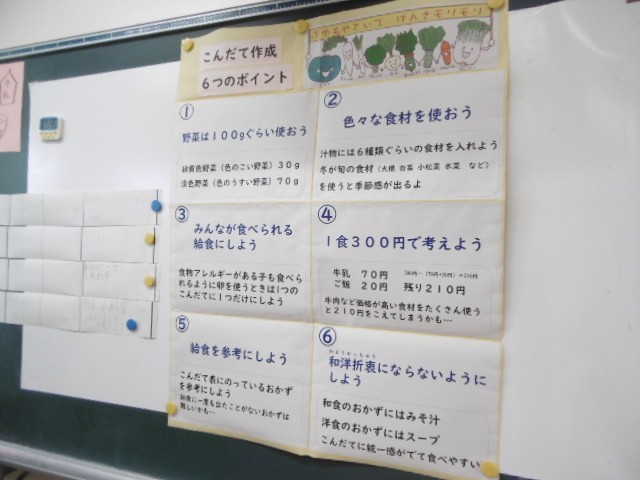 こんだて作成
6つのポイント
ふゆのやさいで げんきモリモリ
①
野菜は100gぐらい使おう
緑黄色野菜（色のこい野菜）30g
淡色野菜（色のうすい野菜）70g
②
色々な食材を使おう
汁物には6種類ぐらいの食材を入れよう
冬が旬の食材（大根 白菜 小松菜 水菜 など）
を使うと季節感が出るよ
③
みんなが食べられる
給食にしよう
食物アレルギーがある子も食べら
れるように卵を使うときは1つの
こんだてに1つだけにしよう
④
1食300円で考えよう
牛乳 70円
ご飯 20円 残り210円
牛肉など価格が高い食材をたくさん使う
と210円をこえてしまうかも…
⑤
給食を参考にしよう
こんだて表にのっているおかず
を参考にしよう
給食に一度も出たことがないおかずは
難しいかも…
⑥
わようせっちゅう
和洋折衷にならないように
しよう
和食のおかずにはみそ汁
洋食のおかずにはスープ
こんだてに統一感がでて食べやすい